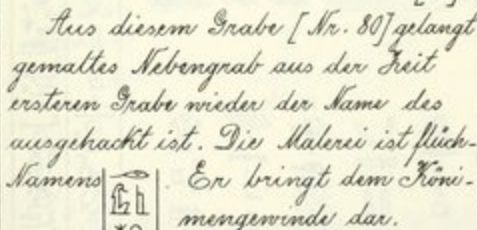 Aus diesem Grabe [Nr. 80] gelangt
gemaltes Nebengrab aus der Zeit
ersteren Grabe wieder der Name des
ausgehackt ist. Die Malerei ist flüch-
Namens . Er bringt dem Köni-
mengewinde dar.